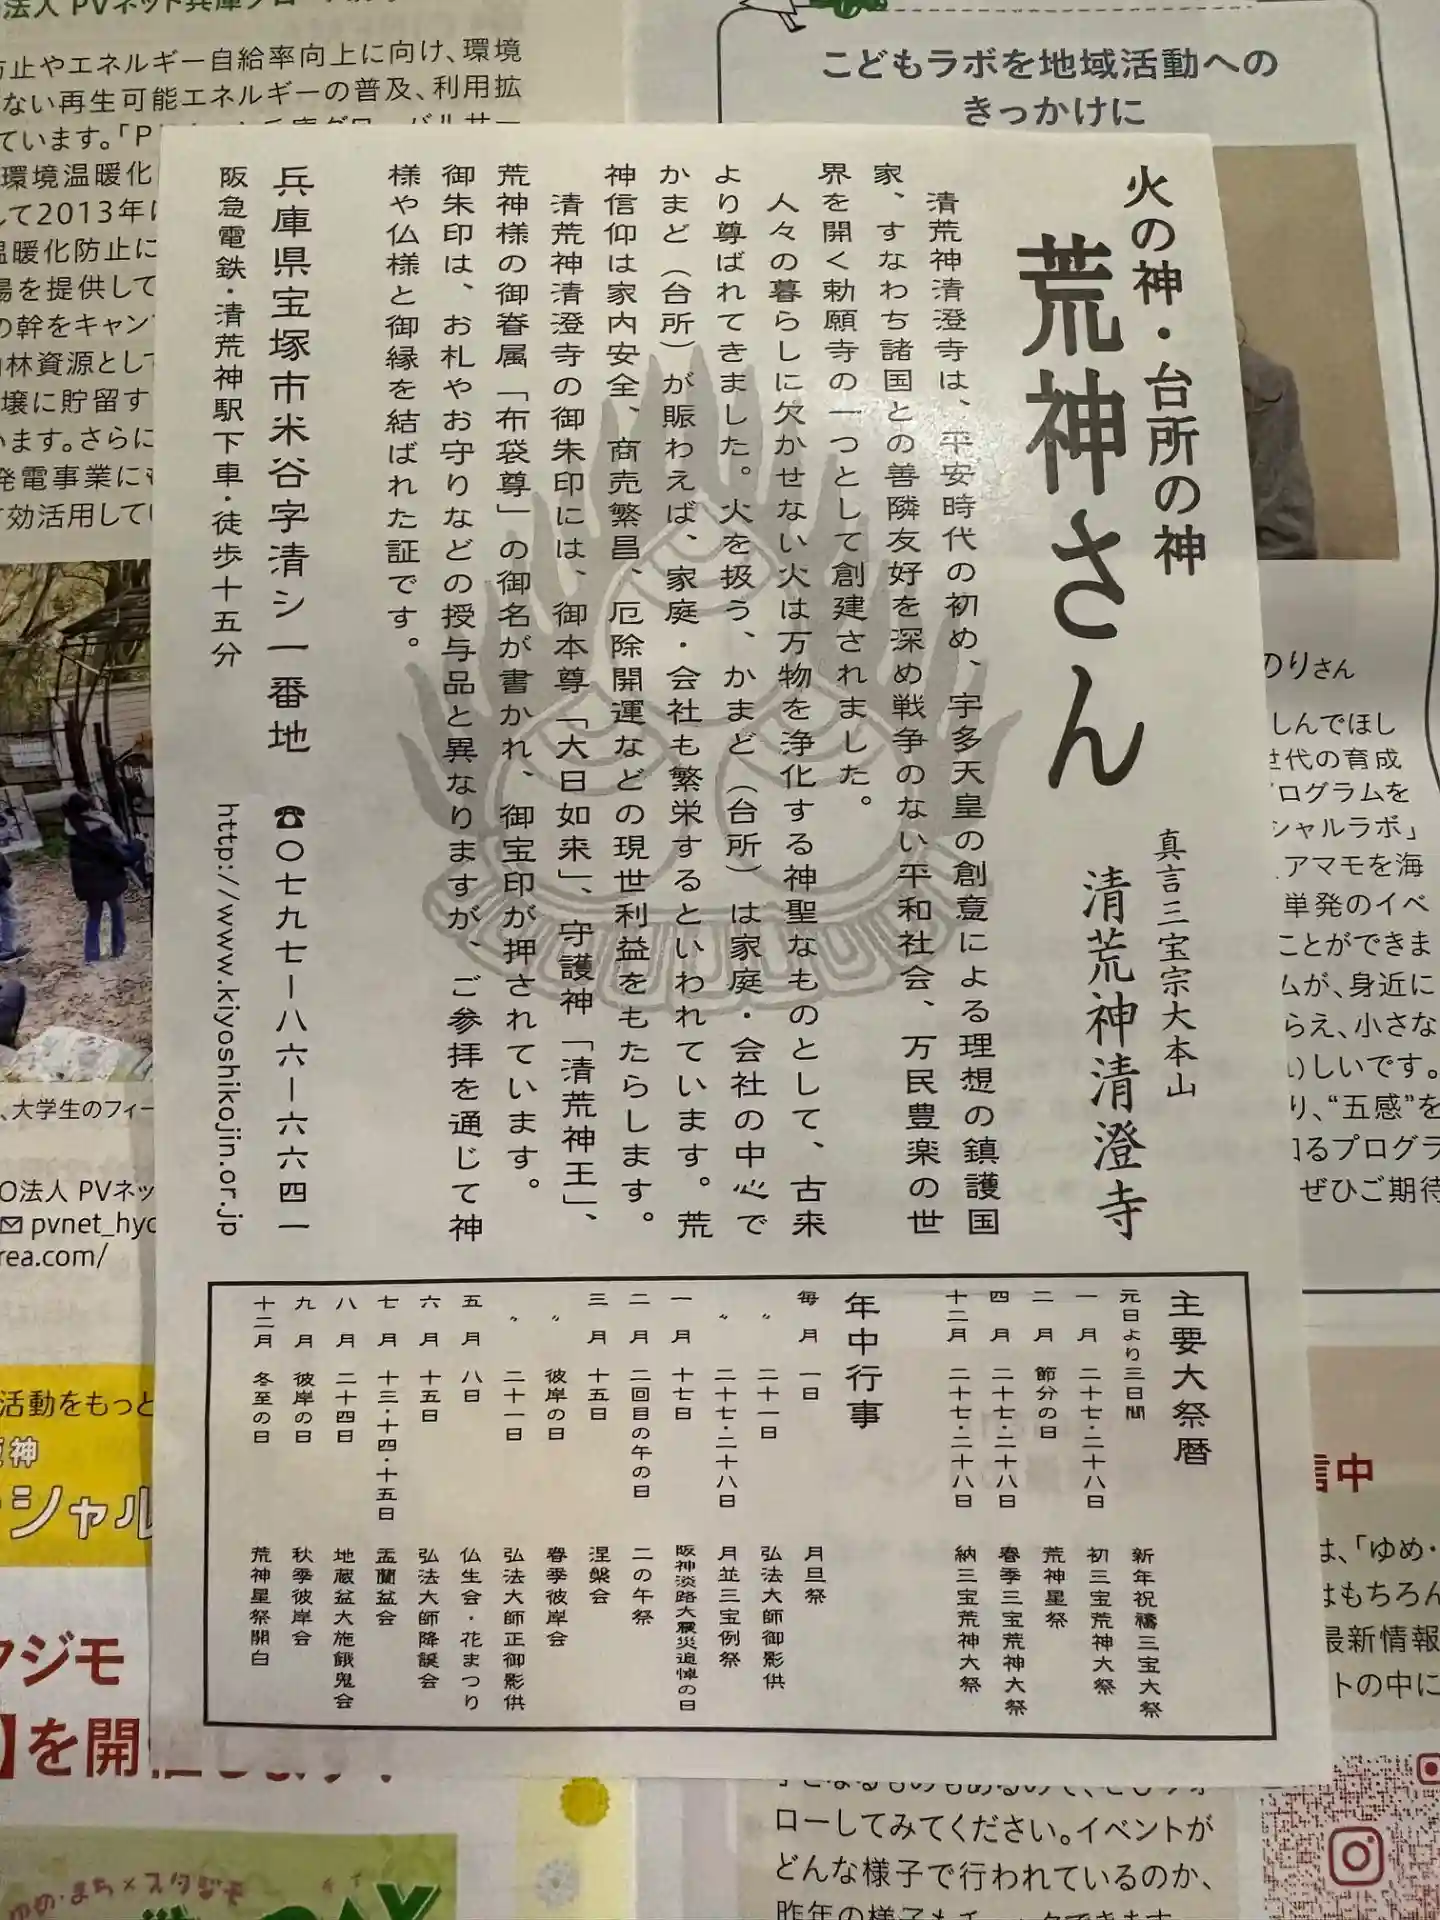 火の神・台所の神
荒神さん
真言三宝宗大本山
清荒神清澄寺
清荒神清澄寺は、平安時代の初め、宇多天皇の創意による理想の鎮護国
家、すなわち諸国との善隣友好を深め戦争のない平和社会、万民豊楽の世
界を開く勅願寺の一つとして創建されました。
人々の暮らしに欠かせない火は万物を浄化する神聖なものとして、古来
より尊ばれてきました。火を扱う、かまど（台所）は家庭・会社の中心で
かまど（台所）が賑わえば、家庭・会社も繁栄するといわれています。荒
神信仰は家内安全、商売繁昌、厄除開運などの現世利益をもたらします。
清荒神清澄寺の御朱印には、御本尊「大日如来」、守護神「清荒神王」、
荒神様の御眷属「布袋尊」の御名が書かれ、御宝印が押されています。
御朱印は、お札やお守りなどの授与品と異なりますが、ご参拝を通じて神
様や仏様と御縁を結ばれた証です。
兵庫県宝塚市米谷字清シ一番地 ☎〇七九七ー八六ー六六四一
阪急電鉄・清荒神駅下車・徒歩十五分 http://www.kiyoshikojin.or.jp
主要大祭暦
元日より三日間 新年祝禱三宝大祭
一月 二十七・二十八日 初三宝荒神大祭
二月 節分の日 荒神星祭
四月 二十七・二十八日 春季三宝荒神大祭
十二月 二十七・二十八日 納三宝荒神大祭
年中行事
毎月 一日 月旦祭
〃 二十一日 弘法大師御影供
〃 二十七・二十八日 月並三宝例祭
一月 十七日 阪神淡路大震災追悼の日
二月 二回目の午の日 二の午祭
三月 十五日 涅槃会
〃 彼岸の日 春季彼岸会
〃 二十一日 弘法大師正御影供
五月 八日 仏生会・花まつり
六月 十五日 弘法大師降誕会
七月 十三・十四・十五日 盂蘭盆会
八月 二十四日 地蔵盆大施餓鬼会
九月 彼岸の日 秋季彼岸会
十二月 冬至の日 荒神星祭開白
法人 PVネット兵庫
防止やエネルギー自給率向上に向け、環境
ない再生可能エネルギーの普及、利用拡
ています。「P
環境温暖化
して2013年に
温暖化防止に
場を提供して
の幹をキャン
林資源として
壌に貯留す
います。さらに
発電事業に
効活用してい
、大学生のフィー
O法人 PVネッ
pvnet_hyo
rea.com/
活動をもっと
シャル
タジモ
】を開
こどもラボを地域活動への
きっかけに
のりさん
しんでほし
世代の育成
プログラムを
シャルラボ」
アマモを海
単発のイベ
ことができま
ムが、身近に
らえ、小さな
しいです。
り、“五感”を
るプログラ
ぜひご期待
信中
は、「ゆめ・
はもちろん
最新情報
トの中に
ローしてみてください。イベントが
どんな様子で行われているのか、
昨年の様子もチェックできます
ゆめ・まち×スタジモ